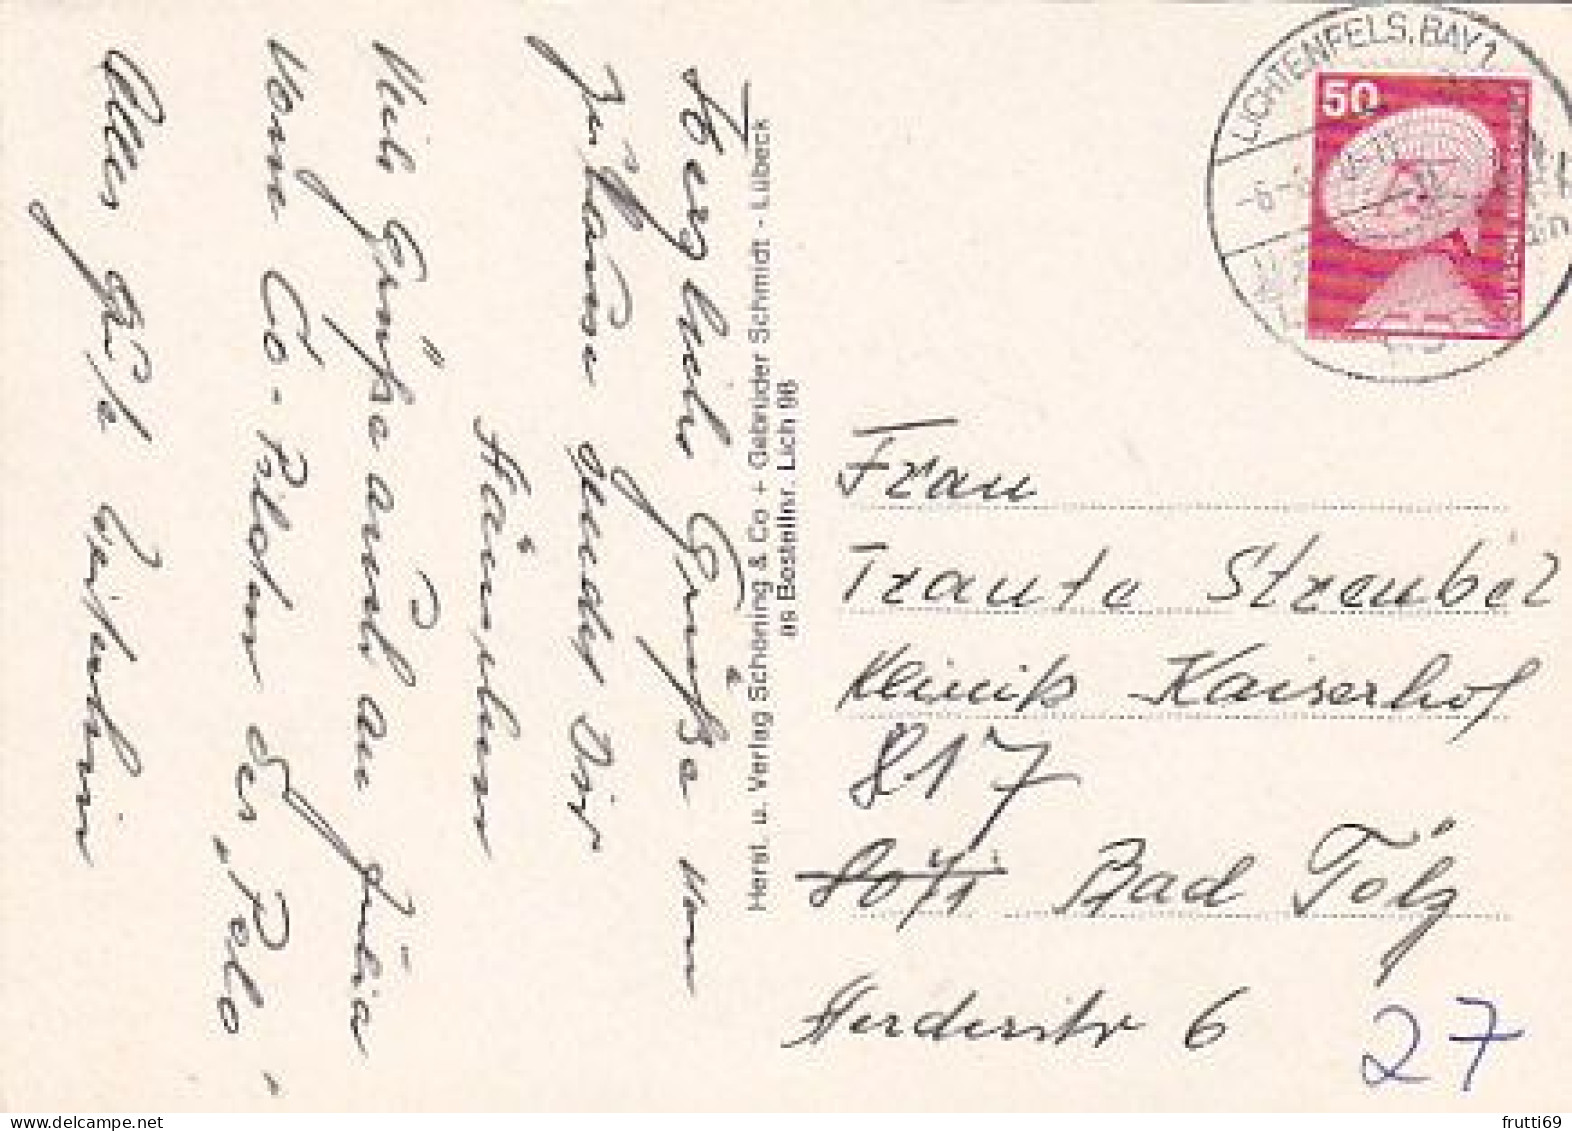 Herzliche Grüße von
Zuhause sendet Dir
Hänschen
Viele Grüße auch an Julia
vom Co-Piloten des „Polo“
Alles Gute weiterhin
Herst. u. Verlag Schöning & Co + Gebrüder Schmidt - Lübeck
Bestellnr. Lich 98
LICHTENFELS, BAY 1
50
Frau
Traute Streubel
Klinik Kaiserhof
817
Bad Tölz
Herderstr 6
27
frutti69